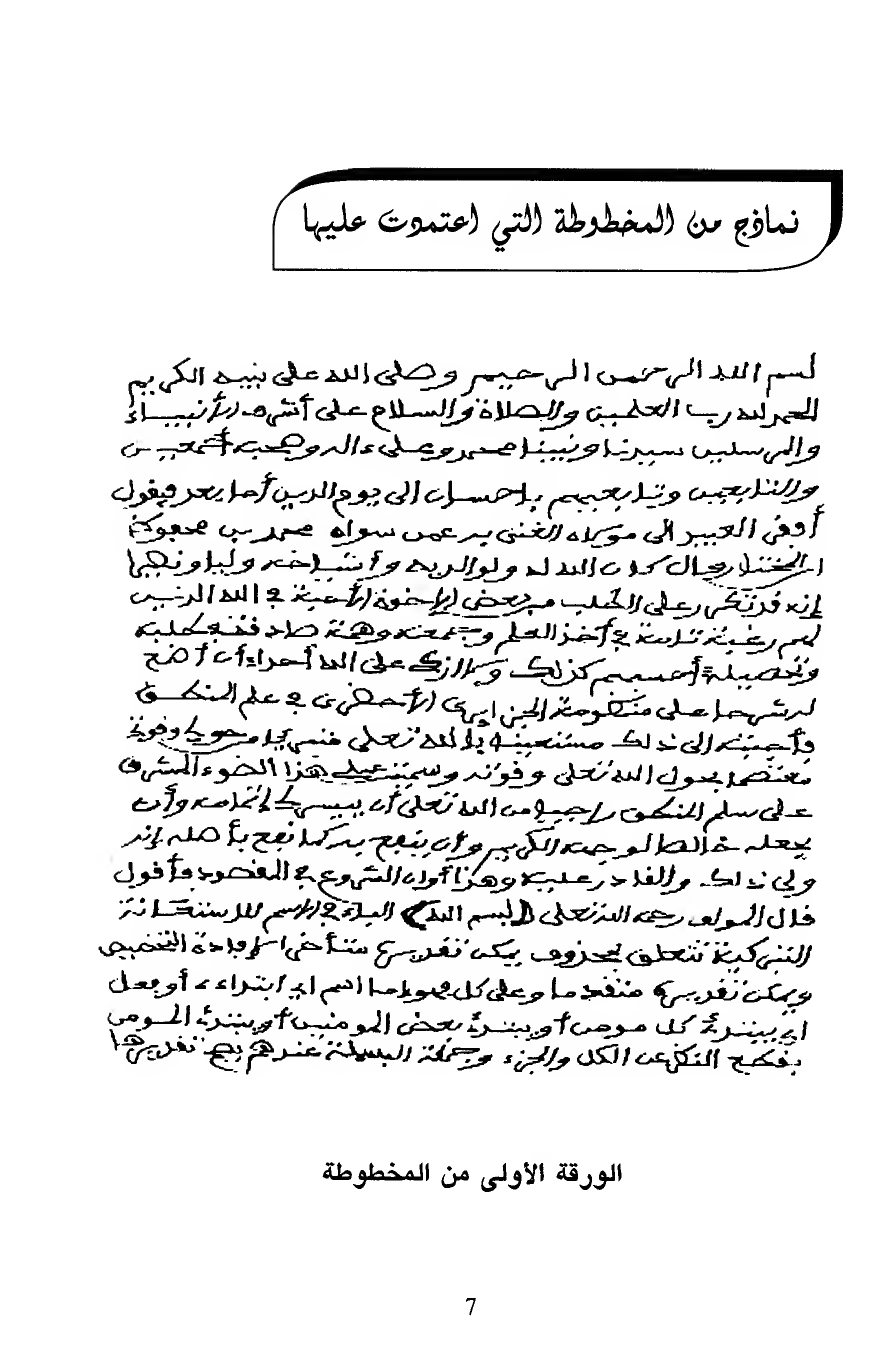 نماذج من المخطوطة التي اعتمدت عليها
بسم الله الرحمن الرحيم وصلى الله على نبيه الكريم
الحمد لله رب العلمين والصلاة والسلام على أشرف الأنبياء
والمرسلين سيدنا ونبينا محمد وعلى ءاله وصحبه أجمعين
والتابعين وتابعيهم بإحسان إلى يوم الدين أما بعد فيقول
أفقر العبيد إلى مولاه الغني به عمن سواه محمد بن محفوظ
المختار فال كان الله له ولوالديه وأشياخه وليا ونصيرا
إنه قد تكرر علي الطلب من بعض الإخوة الأحبة في الله الذين
لهم رغبة تامة في أخذ العلم وجمعه وهمة صادقة في طلبه
وتحصيله أحسبهم كذلك ولا أزكي على الله أحدا أن أضع
لهم شرحا على منظومة الأخضري في علم المنطق
فأجبتهم إلى ذلك مستعينا بالله تعلى
معتصما بحول الله تعلى وقوته وسميته هذا الضوء المشرق
على سلم المنطق راجيا من الله تعلى أن ييسر لي إتمامه وأن
يجعله خالصا لوجهه الكريم وأن ينفع به كما نفع بأصله إنه
ولي ذلك والقادر عليه وهذا أوان الشروع في المقصود فأقول
قال المولف رحمه الله تعلى (بسم الله) الباء في الاسم للاستعانة
التبركية تتعلق بمحذوف يمكن تقديره متأخرا لإفادة التخصيص
ويمكن تقديره متقدما وعلى كل فهو إما اسم اي ابتداء أو فعل
بقطع النظر عن الكل والجزء وجملة البسملة عندهم يصح تقديرها
الورقة الأولى من المخطوطة
7